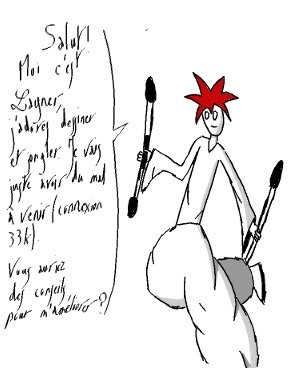 Salut!
Moi c'est
Lagner,
j'adores dessiner
et angler. Je vais
juste avoir du mal
à venir (connexion
33k).
Vous auriez
des conseils
pour m'améliorer?